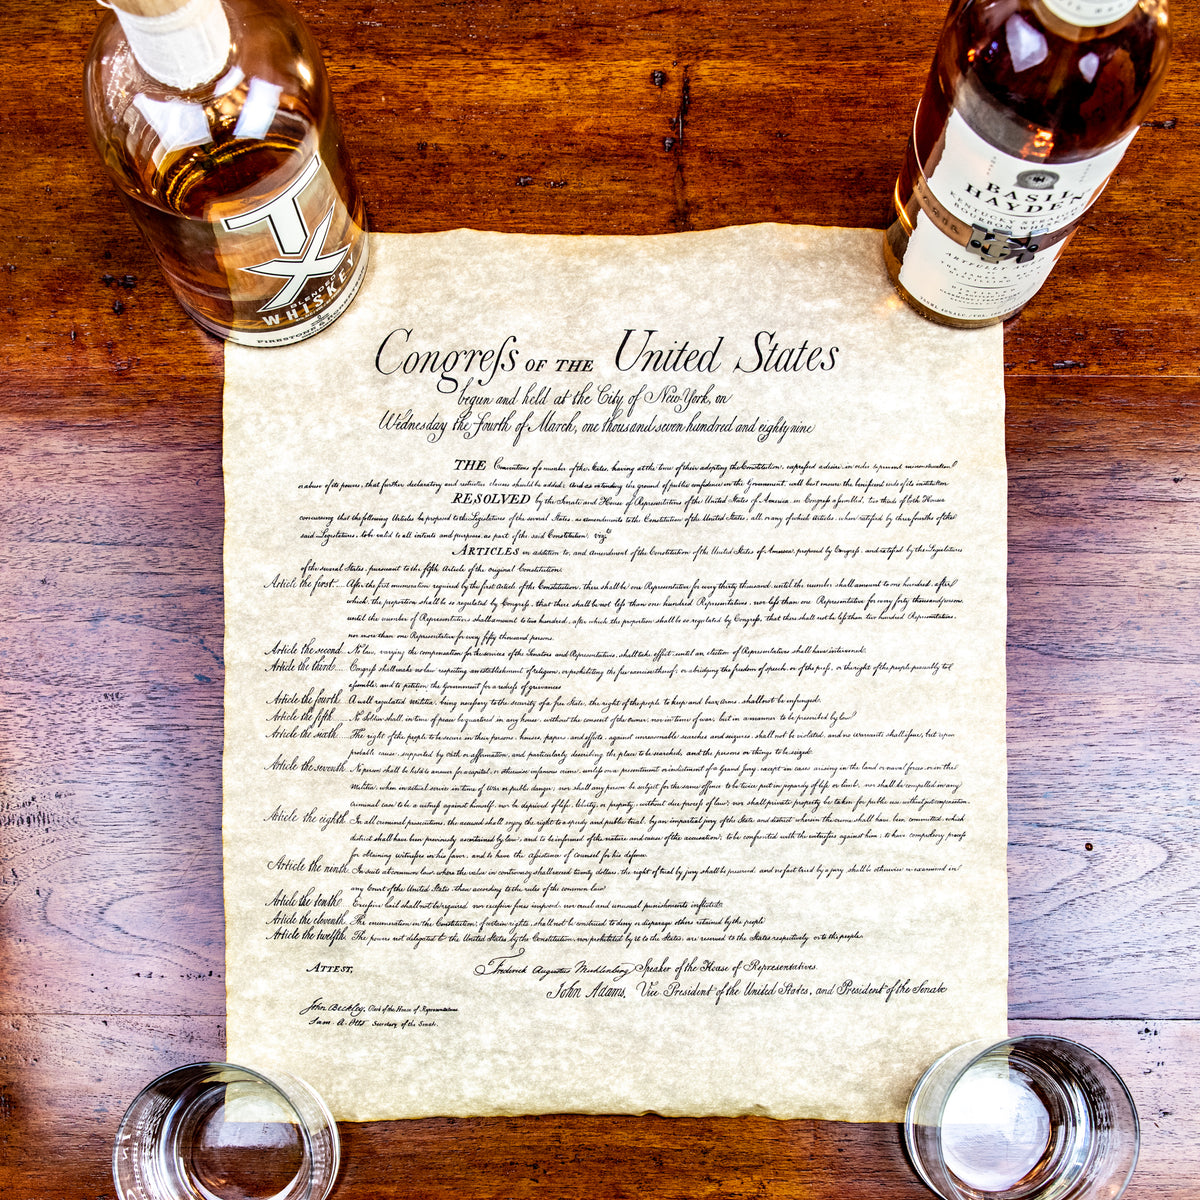 TX
BLENDED
WHISKEY
FIRESTONE & ROBERTSON
BASIL
HAYDEN
KENTUCKY STRAIGHT
BOURBON WHISKEY
ARTFULLY
Congreſs OF THE United States
begun and held at the City of New York, on
Wednesday the Fourth of March, one thousand seven hundred and eighty nine
THE Conventions of a number of the States, having at the time of their adopting the Constitution, expreſsed a desire, in order to prevent misconstruction
or abuse of its powers, that further declaratory and restrictive clauses should be added: And as extending the ground of public confidence in the Government, will best ensure the beneficent ends of its institution
RESOLVED by the Senate and House of Representatives of the United States of America, in Congreſs aſsembled, two thirds of both Houses
concurring that the following Articles be proposed to the Legislatures of the several States, as amendments to the Constitution of the United States, all, or any of which Articles, when ratified by three fourths of the
said Legislatures, to be valid to all intents and purposes, as part of the said Constitution. vizt
ARTICLES in addition to, and amendment of the Constitution of the United States of America, proposed by Congreſs, and ratified by the Legislatures
of the several States, pursuant to the fifth Article of the original Constitution.
Article the first.... After the first enumeration required by the first Article of the Constitution, there shall be one Representative for every thirty thousand, until the number shall amount to one hundred, after
which, the proportion shall be so regulated by Congreſs, that there shall be not leſs than one hundred Representatives, nor leſs than one Representative for every forty thousand persons,
until the number of Representatives shall amount to two hundred, after which the proportion shall be so regulated by Congreſs, that there shall not be leſs than two hundred Representatives,
nor more than one Representative for every fifty thousand persons.
Article the second.. No law, varying the compensation for the services of the Senators and Representatives, shall take effect, until an election of Representatives shall have intervened.
Article the third.... Congreſs shall make no law respecting an establishment of religion, or prohibiting the free exercise thereof; or abridging the freedom of speech, or of the preſs, or the right of the people peaceably to
aſsemble, and to petition the Government for a redreſs of grievances
Article the fourth. A well regulated Militia, being neceſsary to the security of a free State, the right of the people to keep and bear Arms, shall not be infringed.
Article the fifth.... No Soldier shall, in time of peace be quartered in any house, without the consent of the owner, nor in time of war, but in a manner to be prescribed by law
Article the sixth.... The right of the people to be secure in their persons, houses, papers, and effects, against unreasonable searches and seizures, shall not be violated, and no warrants shall iſsue, but upon
probable cause, supported by oath or affirmation, and particularly describing the place to be searched, and the persons or things to be seized.
Article the seventh. No person shall be held to answer for a capital, or otherwise infamous crime, unleſs on a presentment or indictment of a Grand Jury, except in cases arising in the land or naval forces, or in the
Militia, when in actual service in time of War or public danger; nor shall any person be subject for the same offence to be twice put in jeopardy of life or limb, nor shall be compelled in any
criminal case to be a witneſs against himself, nor be deprived of life, liberty, or property, without due proceſs of law; nor shall private property be taken for public use without just compensation.
Article the eighth. In all criminal prosecutions, the accused shall enjoy the right to a speedy and public trial, by an impartial jury of the State and district wherein the crime shall have been committed, which
district shall have been previously ascertained by law, and to be informed of the nature and cause of the accusation; to be confronted with the witneſses against him; to have compulsory proceſs
for obtaining witneſses in his favor, and to have the Aſsistance of counsel for his defence
Article the ninth. In suits at common law, where the value in controversy shall exceed twenty dollars, the right of trial by jury shall be preserved, and no fact tried by a jury shall be otherwise re examined in
any Court of the United States, than according to the rules of the common law
Article the tenth.. Exceſsive bail shall not be required, nor exceſsive fines imposed, nor cruel and unusual punishments inflicted.
Article the eleventh. The enumeration in the Constitution, of certain rights, shall not be construed to deny or disparage others retained by the people
Article the twelfth. The powers not delegated to the United States by the Constitution, nor prohibited by it to the States, are reserved to the States respectively or to the people.
ATTEST,
Frederick Augustus Muhlenberg Speaker of the House of Representatives.
John Adams, Vice President of the United States, and President of the Senate
John Beckley, Clerk of the House of Representatives.
Sam. A. Otis Secretary of the Senate.